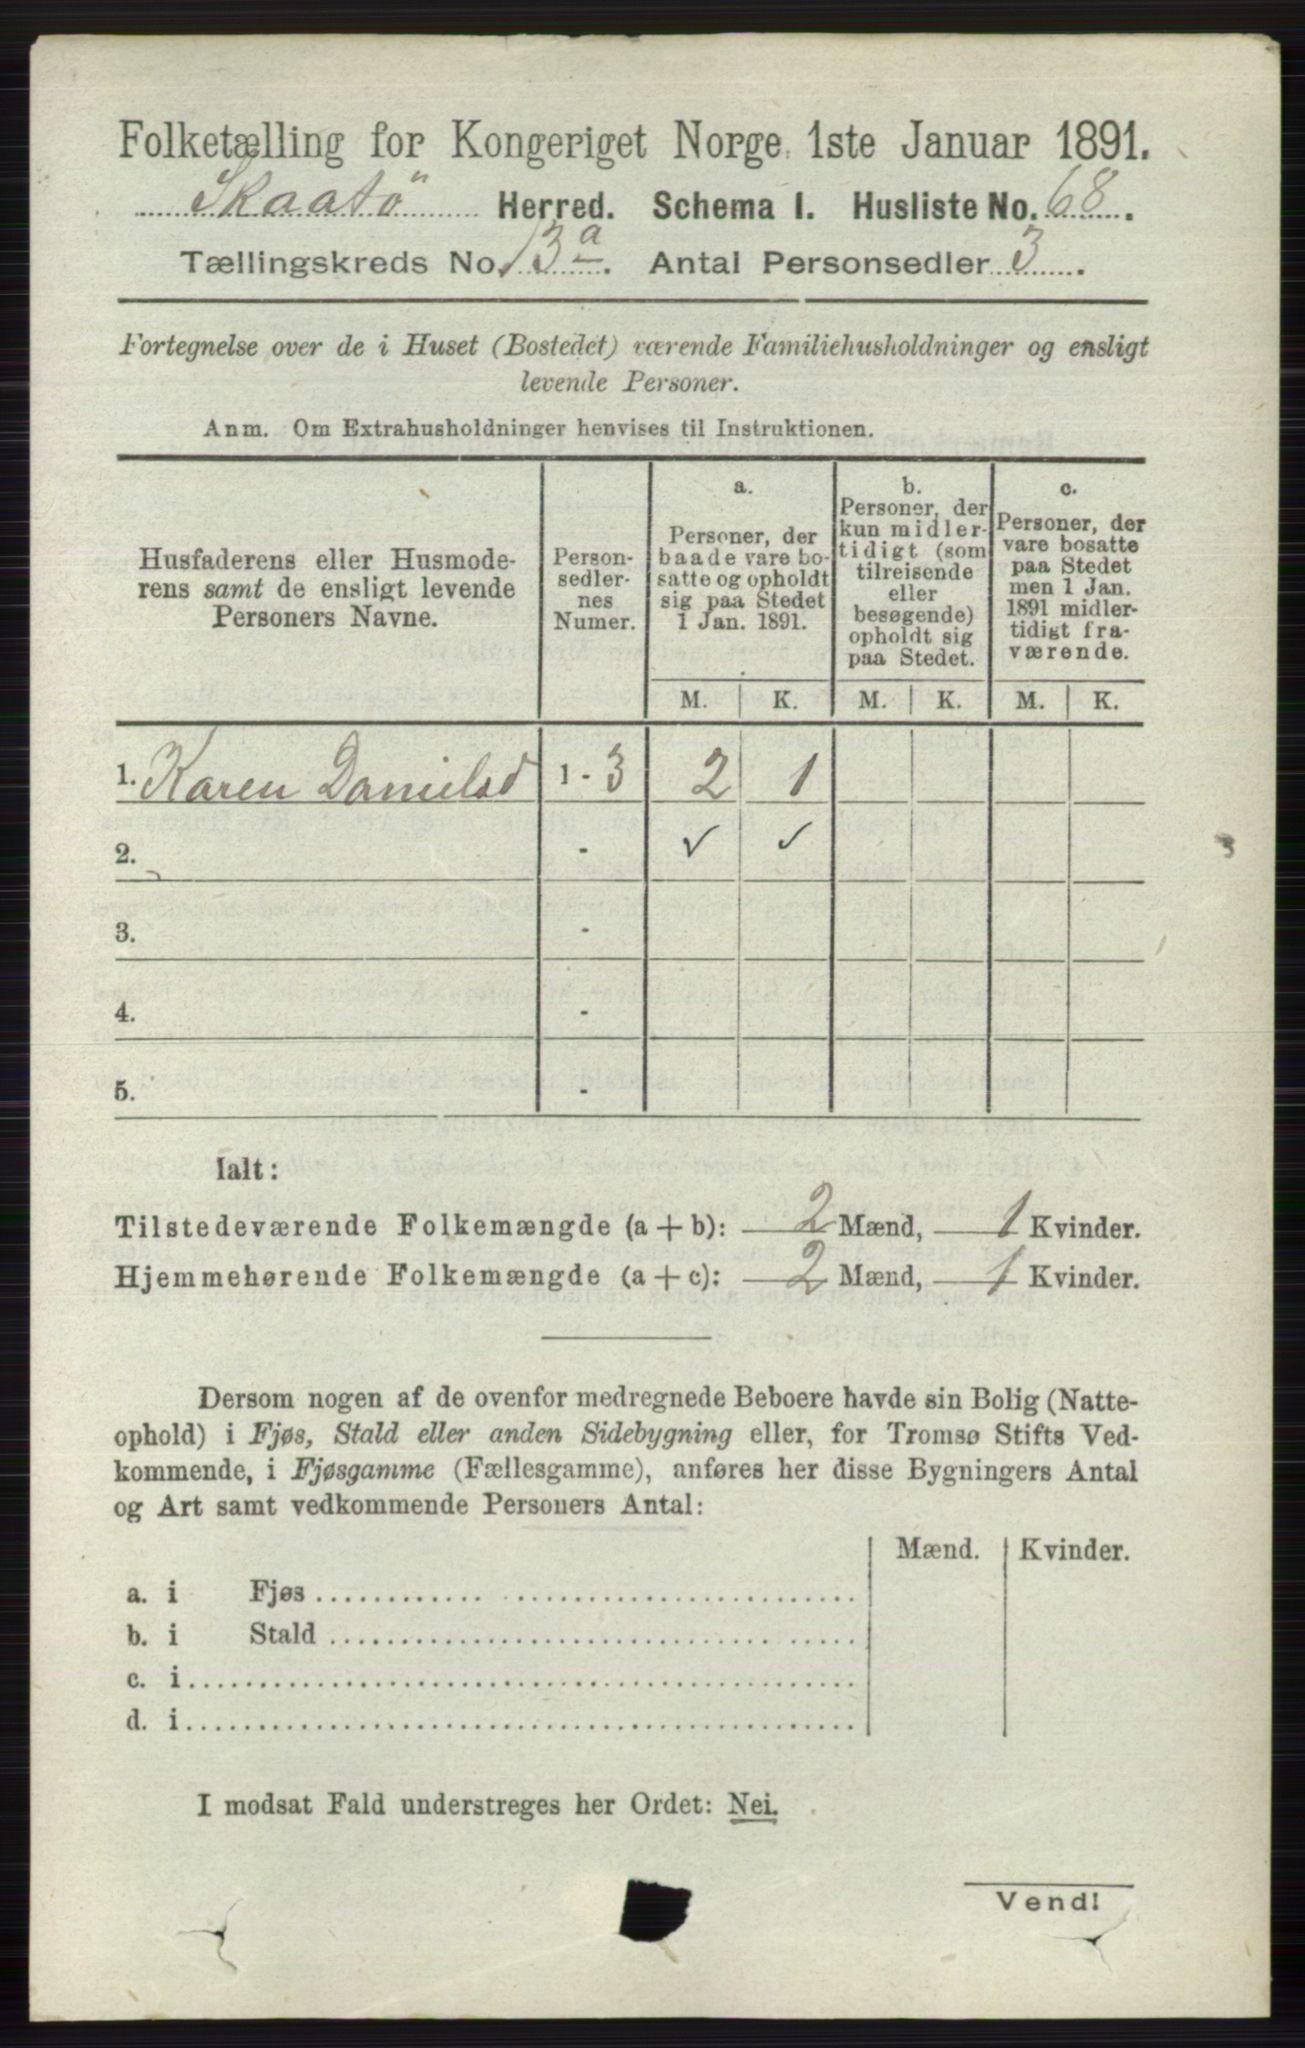 Folketælling for Kongeriget Norge 1ste Januar 1891.
Skaatö Herred. Schema I. Husliste No. 68.
Tællingskreds No. 13a. Antal Personsedler 3.
Fortegnelse over de i Huset (Bostedet) værende Familiehusholdninger og ensligt
levende Personer.
Anm. Om Extrahusholdninger henvises til Instruktionen.
Husfaderens eller Husmode-
rens samt de ensligt levende
Personers Navne.
Person-
sedler-
nes
Numer.
a.
Personer, der
baade vare bo-
satte og opholdt
sig paa Stedet
1 Jan. 1891.
b.
Personer, der
kun midler-
tidigt (som
tilreisende
eller
besøgende)
opholdt sig
paa Stedet.
c.
Personer, der
vare bosatte
paa Stedet
men 1 Jan.
1891 midler-
tidigt fra-
værende.
M. K. M. K. M. K.
1. Karen Danielsd 1 - 3 2 1
2. - ✓ ✓
3. -
4. -
5. -
Ialt:
Tilstedeværende Folkemængde (a + b): 2 Mænd, 1 Kvinder.
Hjemmehørende Folkemængde (a + c): 2 Mænd, 1 Kvinder.
Dersom nogen af de ovenfor medregnede Beboere havde sin Bolig (Natte-
ophold) i Fjøs, Stald eller anden Sidebygning eller, for Tromsø Stifts Ved-
kommende, i Fjøsgamme (Fællesgamme), anføres her disse Bygningers Antal
og Art samt vedkommende Personers Antal:
Mænd. Kvinder.
a. i Fjøs
b. i Stald
c. i
d. i
I modsat Fald understreges her Ordet: Nei.
Vend!